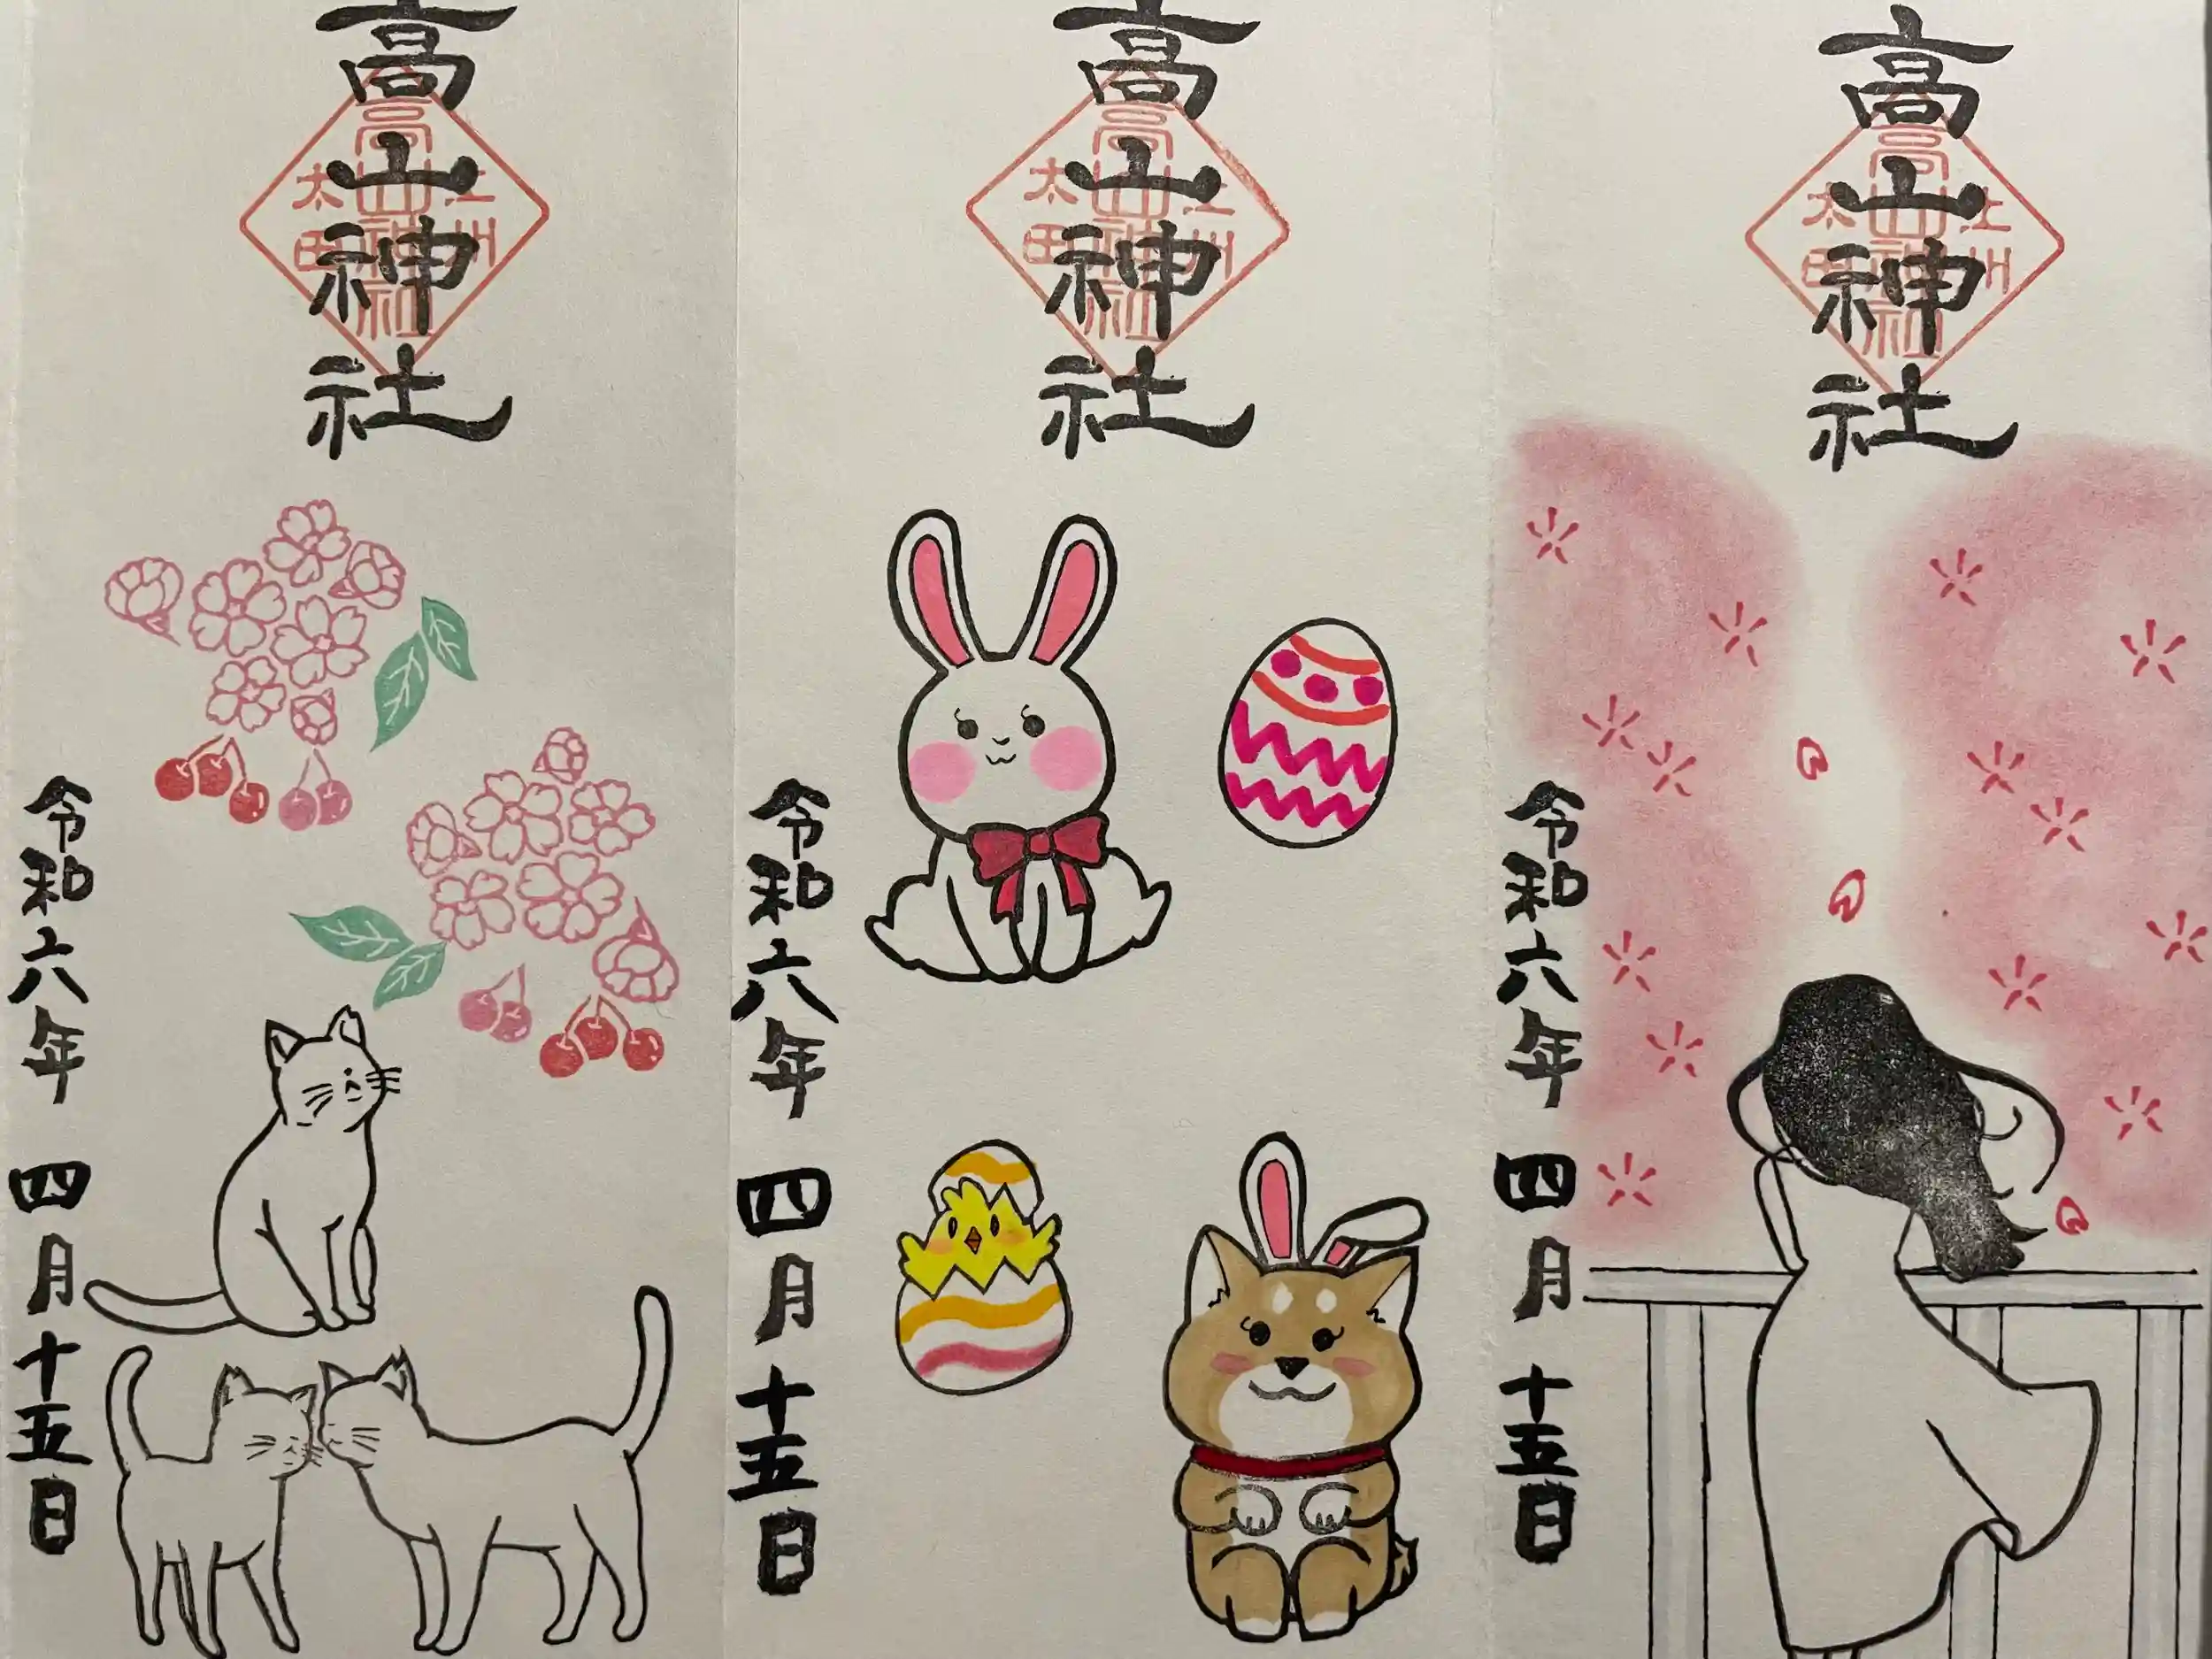 高山神社
上州
高山神社
太田
令和六年 四月十五日
高山神社
上州
高山神社
太田
令和六年 四月十五日
高山神社
上州
高山神社
太田
令和六年 四月十五日